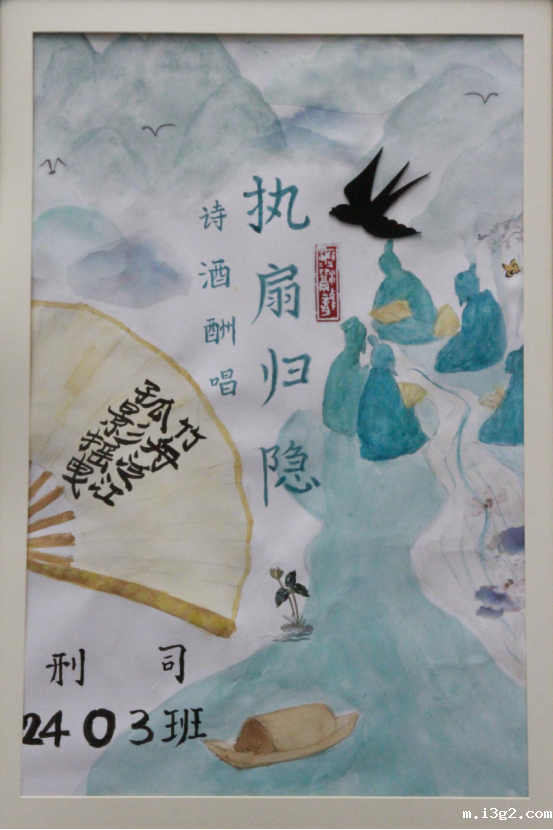 执扇归隐
诗酒酬唱
竹舟泛江
孤景摇曳
刑司
2403班
m.i3g2.com